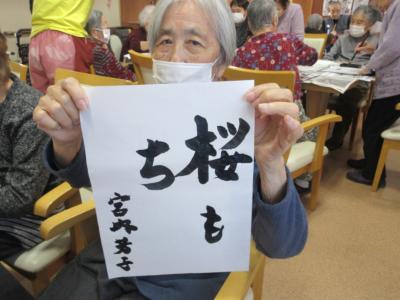 桜も
ち
宮崎芳子